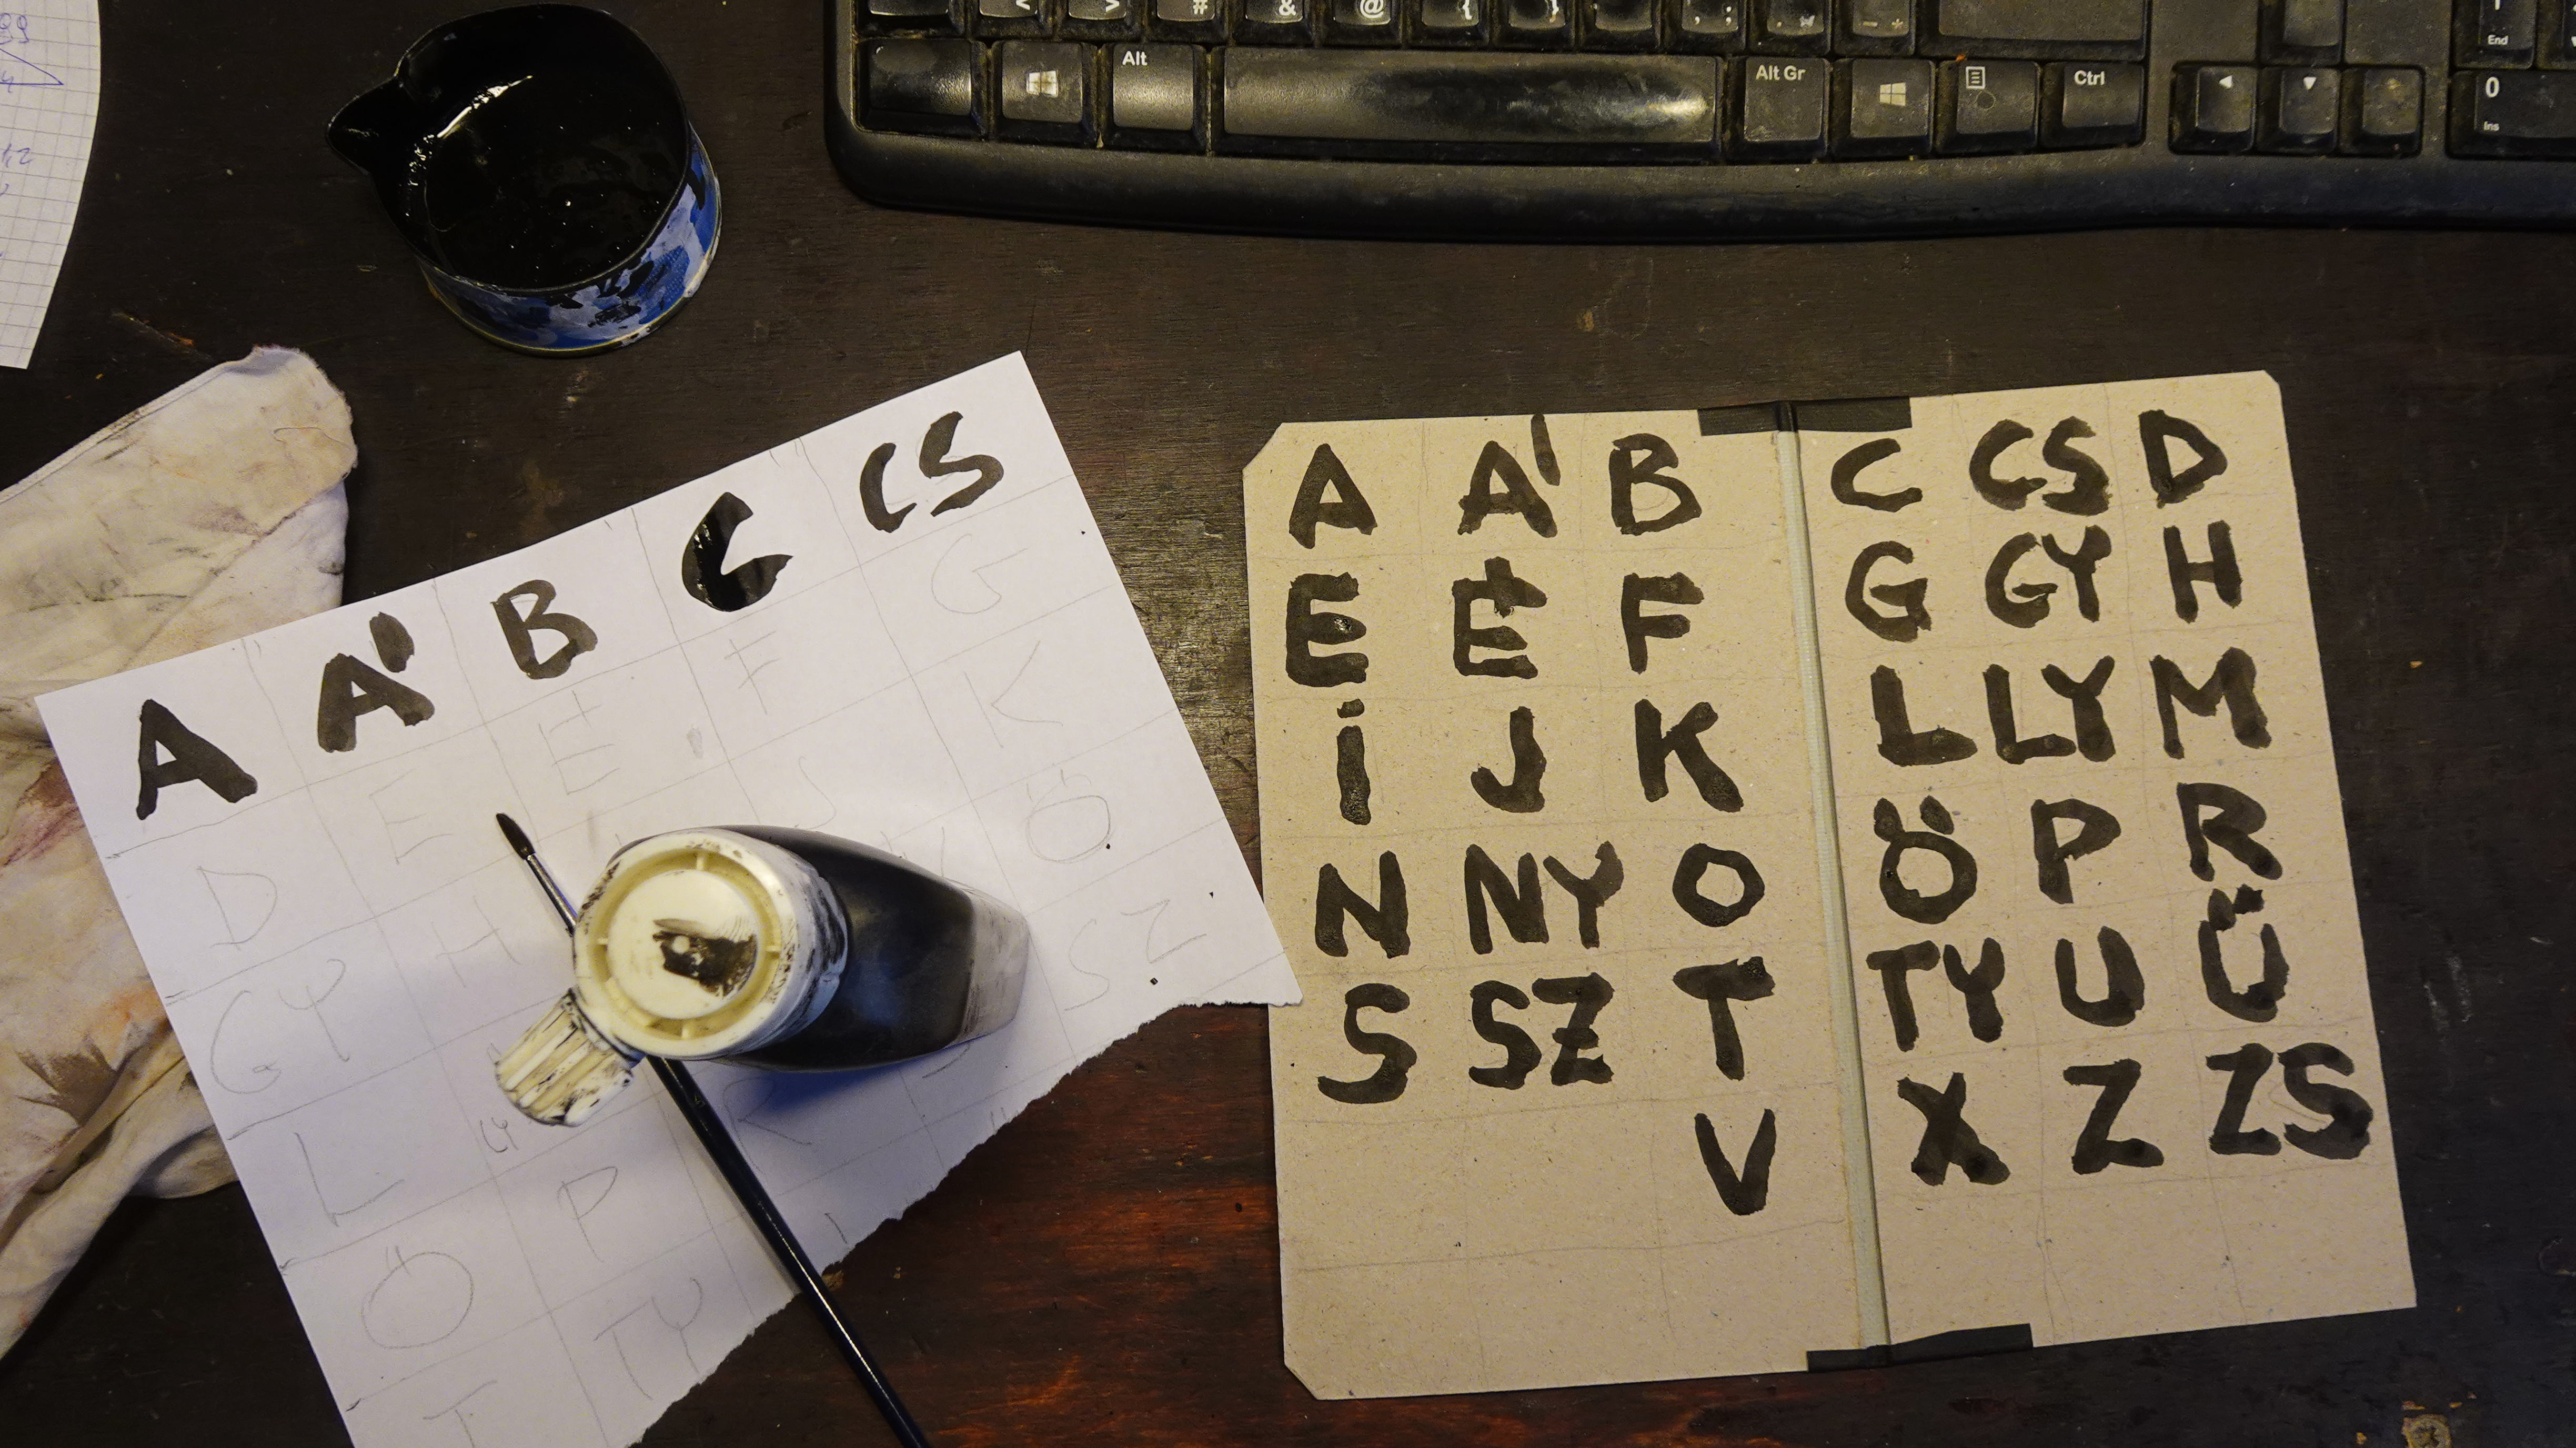 Alt
Alt Gr
Ctrl
End
0
Ins
# & @ { }
A Á B C CS
D E É F G
GY H J K
L LY Ö
Ö P R SZ
T TY
A Á B C CS D
E É F G GY H
İ J K L LY M
N NY O Ö P R
S SZ T TY U Ü
V X Z ZS